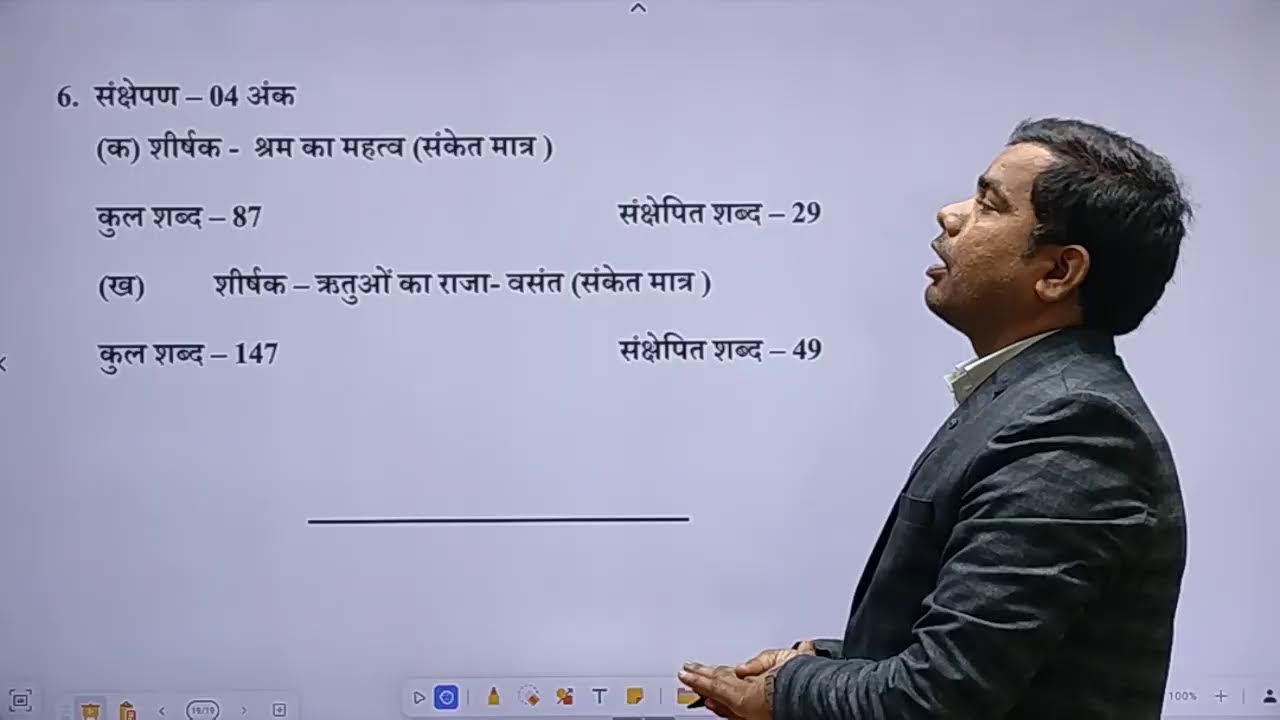 6. संक्षेपण – 04 अंक
(क) शीर्षक - श्रम का महत्व (संकेत मात्र )
कुल शब्द – 87 संक्षेपित शब्द – 29
(ख) शीर्षक – ऋतुओं का राजा- वसंत (संकेत मात्र )
कुल शब्द – 147 संक्षेपित शब्द – 49
19/19 T 100%